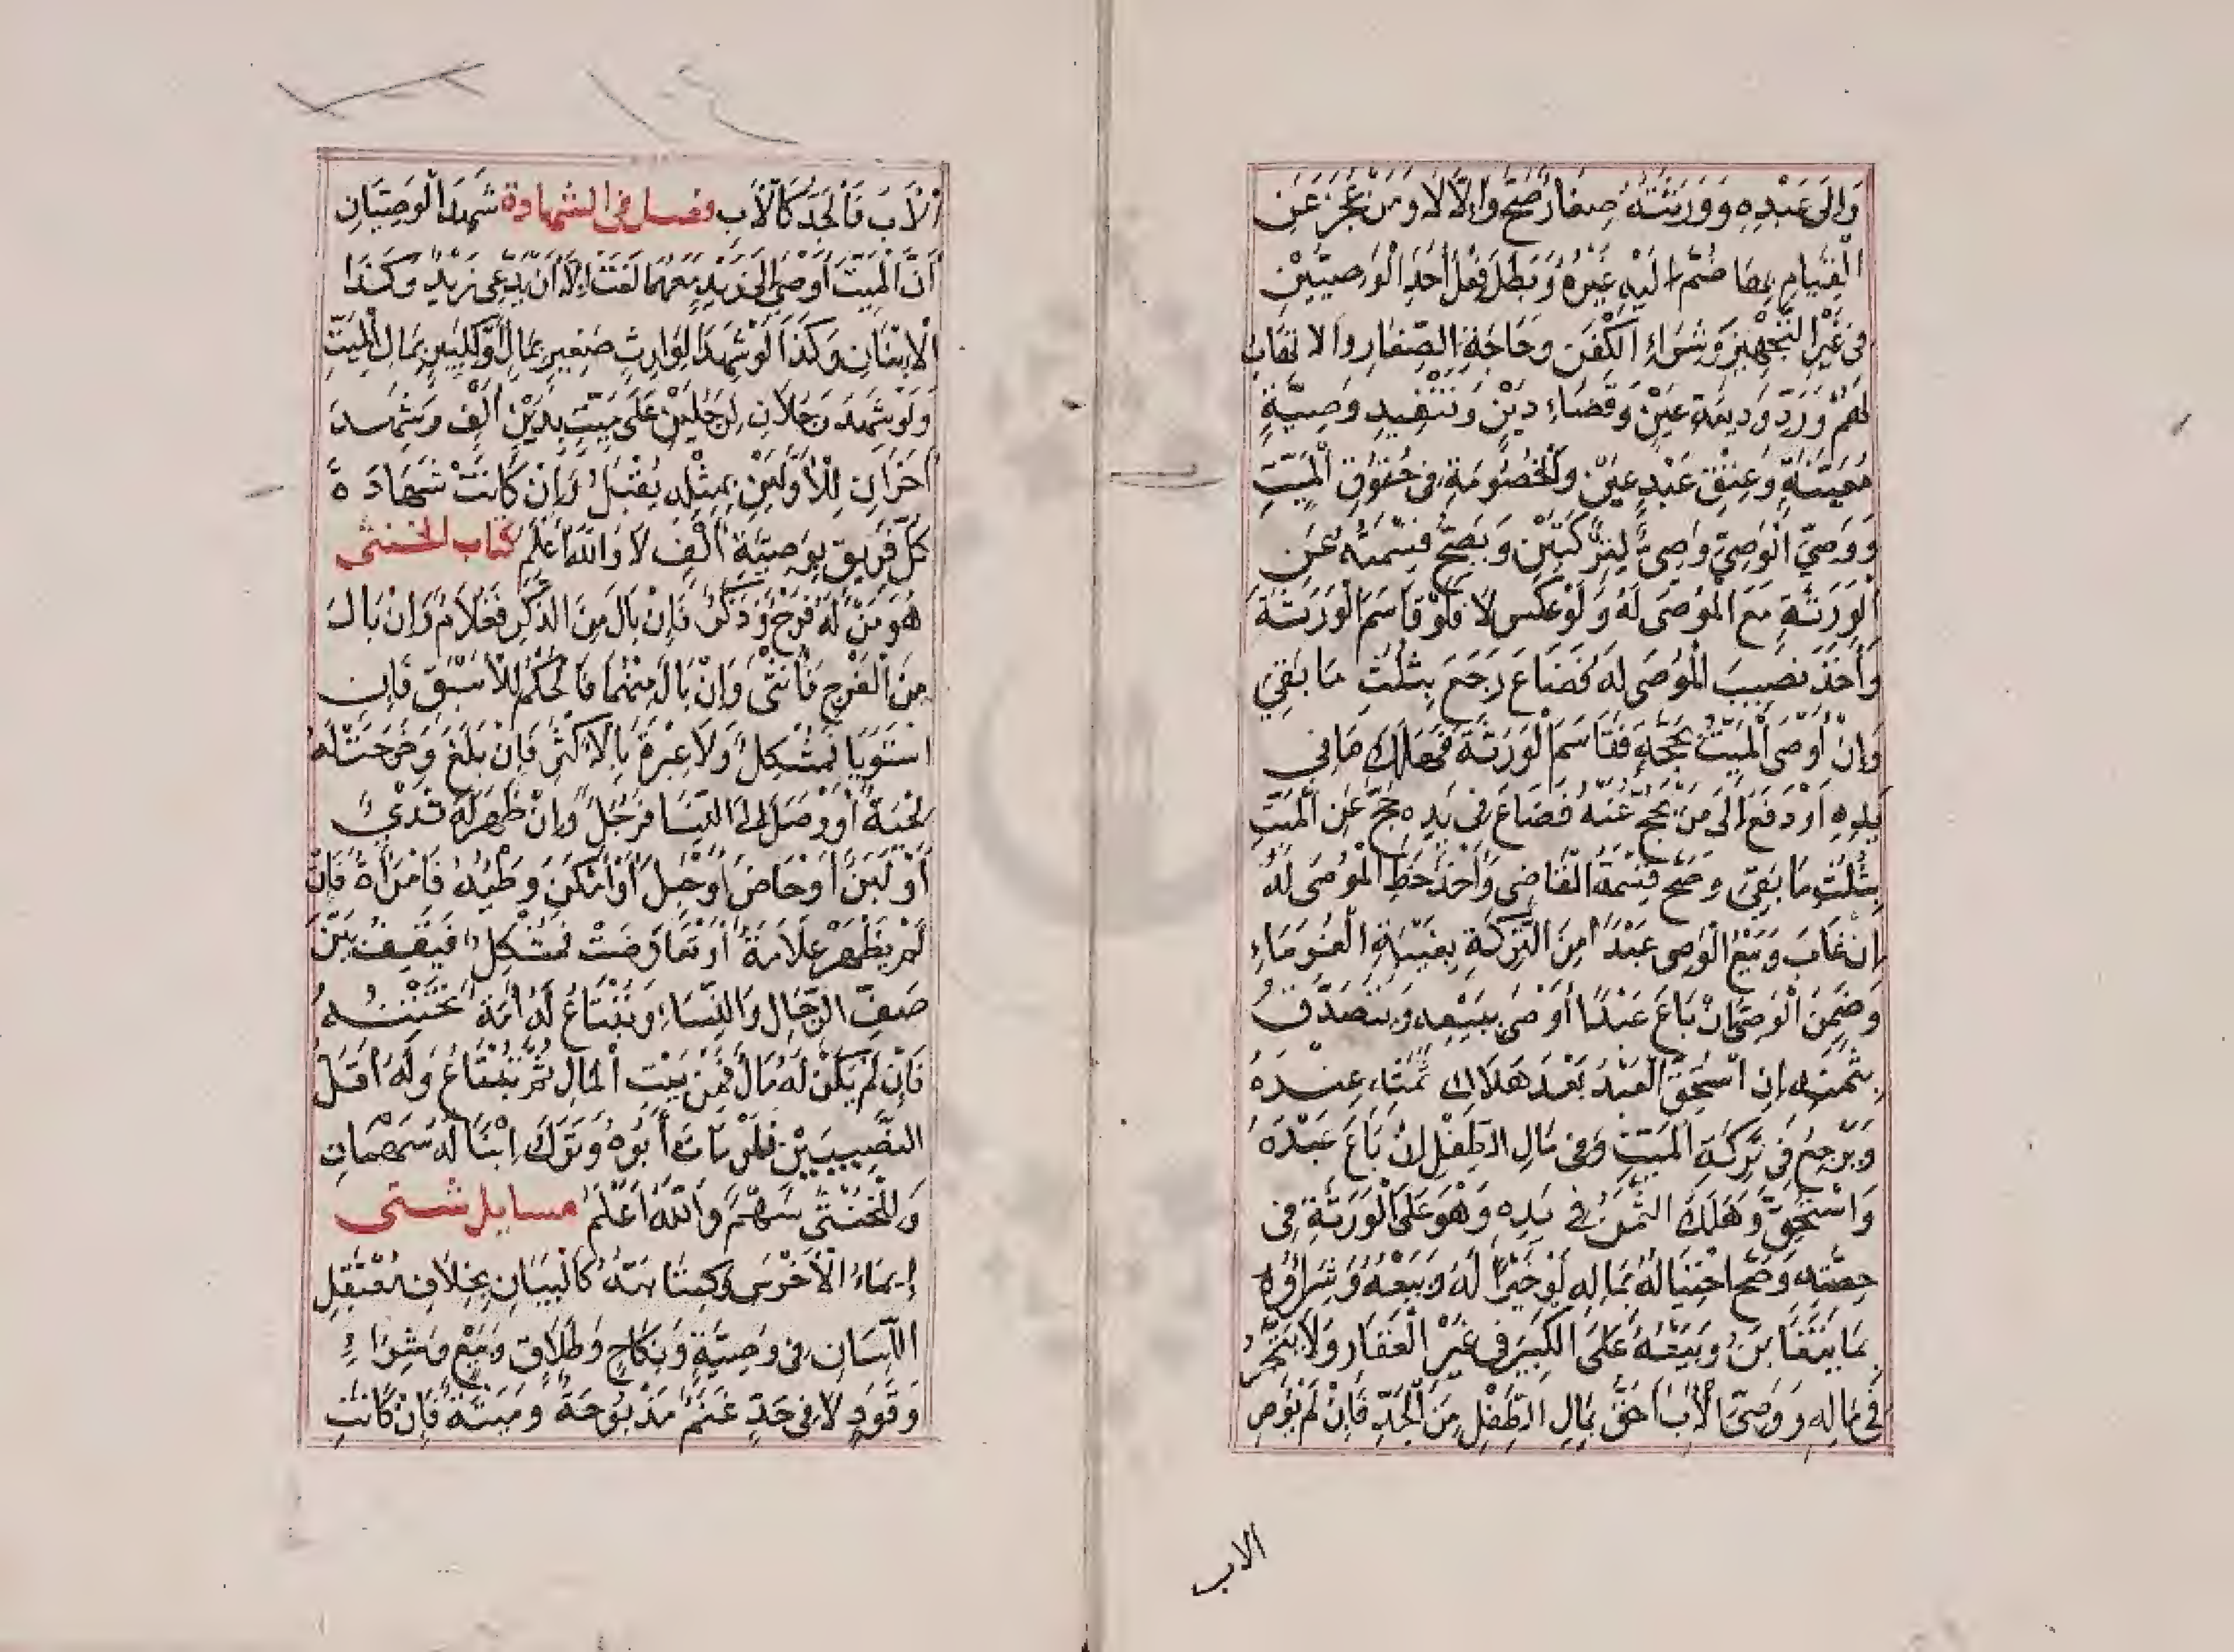 وَإِلَى عَبْدِهِ وَوَرَثَتُهُ صِغَارٌ صَحَّ وَإِلَّا لَا وَمَنْ عَجَزَ عَنِ
الْقِيَامِ بِهَا ضُمَّ إِلَيْهِ غَيْرُهُ وَبَطَلَ فِعْلُ أَحَدِ الْوَصِيَّيْنِ
فِي غَيْرِ التَّجْهِيزِ وَشِرَاءِ الْكَفَنِ وَحَاجَةِ الصِّغَارِ وَالاتهاب
لَهُمْ وَرَدِّ وَدِيعَةِ عَيْنٍ وَقَضَاءِ دَيْنٍ وَتَنْفِيذِ وَصِيَّةٍ
مُعَيَّنَةٍ وَعِتْقِ عَبْدٍ عَيْنٍ وَالْخُصُومَةِ فِي حُقُوقِ الْمَيِّتِ
وَوَصِيُّ الْوَصِيِّ وَصِيُّ التَّرِكَتَيْنِ وَيَصِحُّ قِسْمَتُهُ عَنِ
الْوَرَثَةِ مَعَ الْمُوصَى لَهُ وَلَوْ عُكِسَ لَا فَلَوْ قَاسَمَ الْوَرَثَةَ
وَأَخَذَ نَصِيبَ الْمُوصَى لَهُ فَضَاعَ رَجَعَ بِثُلُثِ مَا بَقِيَ
وَإِنْ أَوْصَى الْمَيِّتُ بِحَجَّةٍ فَقَاسَمَ الْوَرَثَةَ فَهَلَكَ مَا فِي
يَدِهِ أَوْ دَفَعَ إِلَى مَنْ يَحُجُّ عَنْهُ فَضَاعَ فِي يَدِهِ حُجَّ عَنِ الْمَيِّتِ
بِثُلُثِ مَا بَقِيَ وَصَحَّ قِسْمَةُ الْقَاضِي وَأَخْذُ حَظِّ الْمُوصَى لَهُ
إِنْ غَابَ وَبَيْعُ الْوَصِيِّ عَبْدًا مِنَ التَّرِكَةِ بِغَيْبَةِ الْغُرَمَاءِ
وَضَمِنَ الْوَصِيُّ إِنْ بَاعَ عَبْدًا أَوْصَى بِبَيْعِهِ وَيَتَصَدَّقُ
بِثَمَنِهِ إِنِ اسْتُحِقَّ الْعَبْدُ بَعْدَ هَلَاكِ ثَمَنِهِ عِنْدَهُ
وَيَرْجِعُ فِي تَرِكَةِ الْمَيِّتِ وَفِي مَالِ الطِّفْلِ إِنْ بَاعَ عَبْدَهُ
وَاسْتُحِقَّ وَهَلَكَ الثَّمَنُ فِي يَدِهِ وَهُوَ عَلَى الْوَرَثَةِ فِي
حِصَّتِهِ وَصَحَّ احْتِيَالُهُ بِمَالِهِ لَوْ خَيْرًا لَهُ وَبَيْعُهُ وَشِرَاؤُهُ
بِمَا يَتَغَابَنُ وَبَيْعُهُ عَلَى الْكَبِيرِ فِي غَيْرِ الْعَقَارِ وَلَا يَتَّجِرُ
فِي مَالِهِ وَوَصِيُّ الْأَبِ أَحَقُّ بِمَالِ الطِّفْلِ مِنَ الْجَدِّ فَإِنْ لَمْ يُوصِ
الاب
الْأَبُ فَالْجَدُّ كَالْأَبِ فصل في الشهادة شَهِدَ الْوَصِيَّانِ
أَنَّ الْمَيِّتَ أَوْصَى إِلَى زَيْدٍ مَعَهُمَا لَغَتْ إِلَّا أَنْ يَدَّعِيَ زَيْدٌ وَكَذَا
الْابْنَانِ وَكَذَا لَوْ شَهِدَا لِوَارِثٍ صَغِيرٍ بِمَالٍ أَوْ لِكَبِيرٍ بِمَالِ الْمَيِّتِ
وَلَوْ شَهِدَ رَجُلَانِ لِرَجُلَيْنِ عَلَى مَيِّتٍ بِدَيْنِ أَلْفٍ وَشَهِدَ
آخَرَانِ لِلْأَوَّلَيْنِ بِمِثْلِهِ يُقْبَلُ وَإِنْ كَانَتْ شَهَادَةُ
كُلِّ فَرِيقٍ بِوَصِيَّةِ أَلْفٍ لَا وَاللهُ أَعْلَمُ كتاب الخنثى
هُوَ مَنْ لَهُ فَرْجٌ وَذَكَرٌ فَإِنْ بَالَ مِنَ الذَّكَرِ فَغُلَامٌ وَإِنْ بَالَ
مِنَ الْفَرْجِ فَأُنْثَى وَإِنْ بَالَ مِنْهُمَا فَالْحُكْمُ لِلْأَسْبَقِ فَإِنِ
اسْتَوَيَا فَمُشْكِلٌ وَلَا عِبْرَةَ بِالْأَكْثَرِ فَإِنْ بَلَغَ وَخَرَجَتْ لَهُ
لِحْيَةٌ أَوْ وَصَلَ إِلَى النِّسَا فَرَجُلٌ وَإِنْ ظَهَرَ لَهُ ثَدْيٌ
أَوْ لَبَنٌ أَوْ حَاضَ أَوْ حَبِلَ أَوْ أَمْكَنَ وَطْيُهُ فَامْرَأَةٌ فَإِنْ
لَمْ يَظْهَرْ عَلَامَةٌ أَوْ تَعَارَضَتْ فَمُشْكِلٌ فَيَقِفُ بَيْنَ
صَفِّ الرِّجَالِ وَالنِّسَاءِ وَيُبْتَاعُ لَهُ أَمَةٌ تَخْتِنُهُ
فَإِنْ لَمْ يَكُنْ لَهُ مَالٌ فَمِنْ بَيْتِ الْمَالِ ثُمَّ يُبْتَاعُ وَلَهُ أَقَلُّ
النَّصِيبَيْنِ فَلَوْ مَاتَ أَبُوهُ وَتَرَكَ ابْنًا لَهُ سَهْمَانِ
وَلِلْخُنْثَى سَهْمٌ وَاللهُ أَعْلَمُ مسايل شتى
إِيمَاءُ الْأَخْرَسِ وَكِتَابَتُهُ كَالْبَيَانِ بِخِلَافِ مُعْتَقَلِ
اللِّسَانِ فِي وَصِيَّةٍ وَنِكَاحٍ وَطَلَاقٍ وَبَيْعٍ وَشِرَاءٍ
وَقَوَدٍ لَا فِي حَدٍّ غَنَمٌ مَذْبُوحَةٌ وَمَيْتَةٌ فَإِنْ كَانَتِ